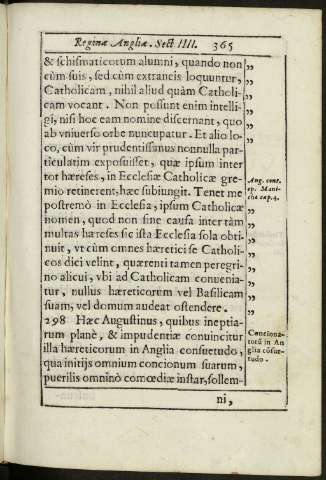 Reginæ Angliæ. Sect IIII. 365
& schismaticorum alumni, quando non „
cùm suis, sed cùm extraneis loquuntur, „
Catholicam, nihil aliud quàm Catholi- „
cam vocant. Non possunt enim intelli- „
gi, nisi hoc eam nomine discernant, quo „
ab vniuerso orbe nuncupatur. Et alio lo- „
co, cùm vir prudentissimus nonnulla par-
ticulatim exposuisset, quæ ipsum inter
tot hæreses, in Ecclesiæ Catholicæ gre-
mio retinerent, hæc subiungit. Tenet me
postremò in Ecclesia, ipsum Catholicæ
nomen, quod non sine causa inter tàm „
multas hæreses sic ista Ecclesia sola obti- „
nuit, vt cùm omnes hæretici se Catholi- „
cos dici velint, quærenti tamen peregri- „
no alicui, vbi ad Catholicam conuenia- „
tur, nullus hæreticorum vel Basilicam „
suam, vel domum audeat ostendere. „
Aug. cont.
ep. Mani-
chæ cap. 4.
298 Hæc Augustinus, quibus ineptia-
rum planè, & impudentiæ conuincitur
illa hæreticorum in Anglia consuetudo,
qua initijs omnium concionum suarum,
puerilis omninò comœdiæ instar, sollem-
Conciona-
torū in An
glia cōsue-
tudo.
ni,